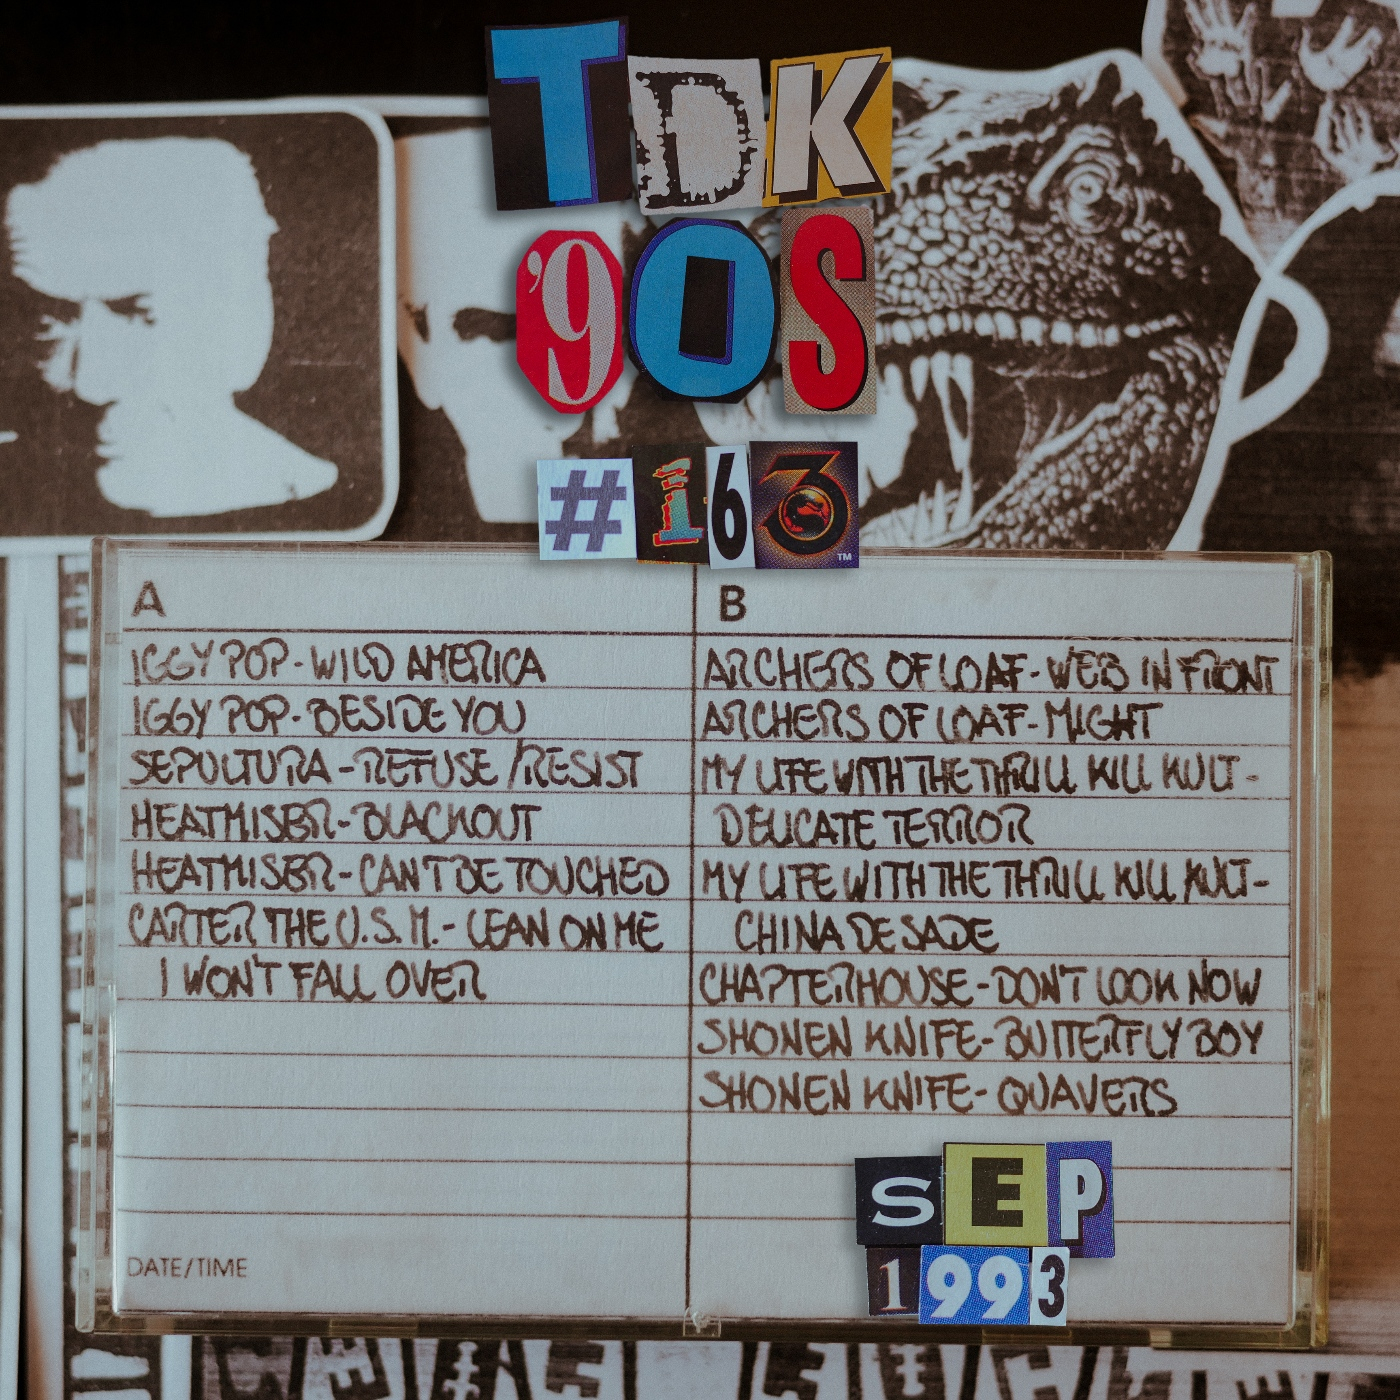 TDK
'90S
#163
TM
A
IGGY POP - WILD AMERICA
IGGY POP - BESIDE YOU
SEPULTURA - REFUSE / RESIST
HEATMISER - BLACKOUT
HEATMISER - CAN'T BE TOUCHED
CARTER THE U.S.M. - LEAN ON ME
I WON'T FALL OVER
B
ARCHERS OF LOAF - WEB IN FRONT
ARCHERS OF LOAF - MIGHT
MY LIFE WITH THE THRILL KILL KULT -
DELICATE TERROR
MY LIFE WITH THE THRILL KILL KULT -
CHINA DE SADE
CHAPTERHOUSE - DON'T LOOK NOW
SHONEN KNIFE - BUTTERFLY BOY
SHONEN KNIFE - QUAVERS
DATE/TIME
SEP
1993